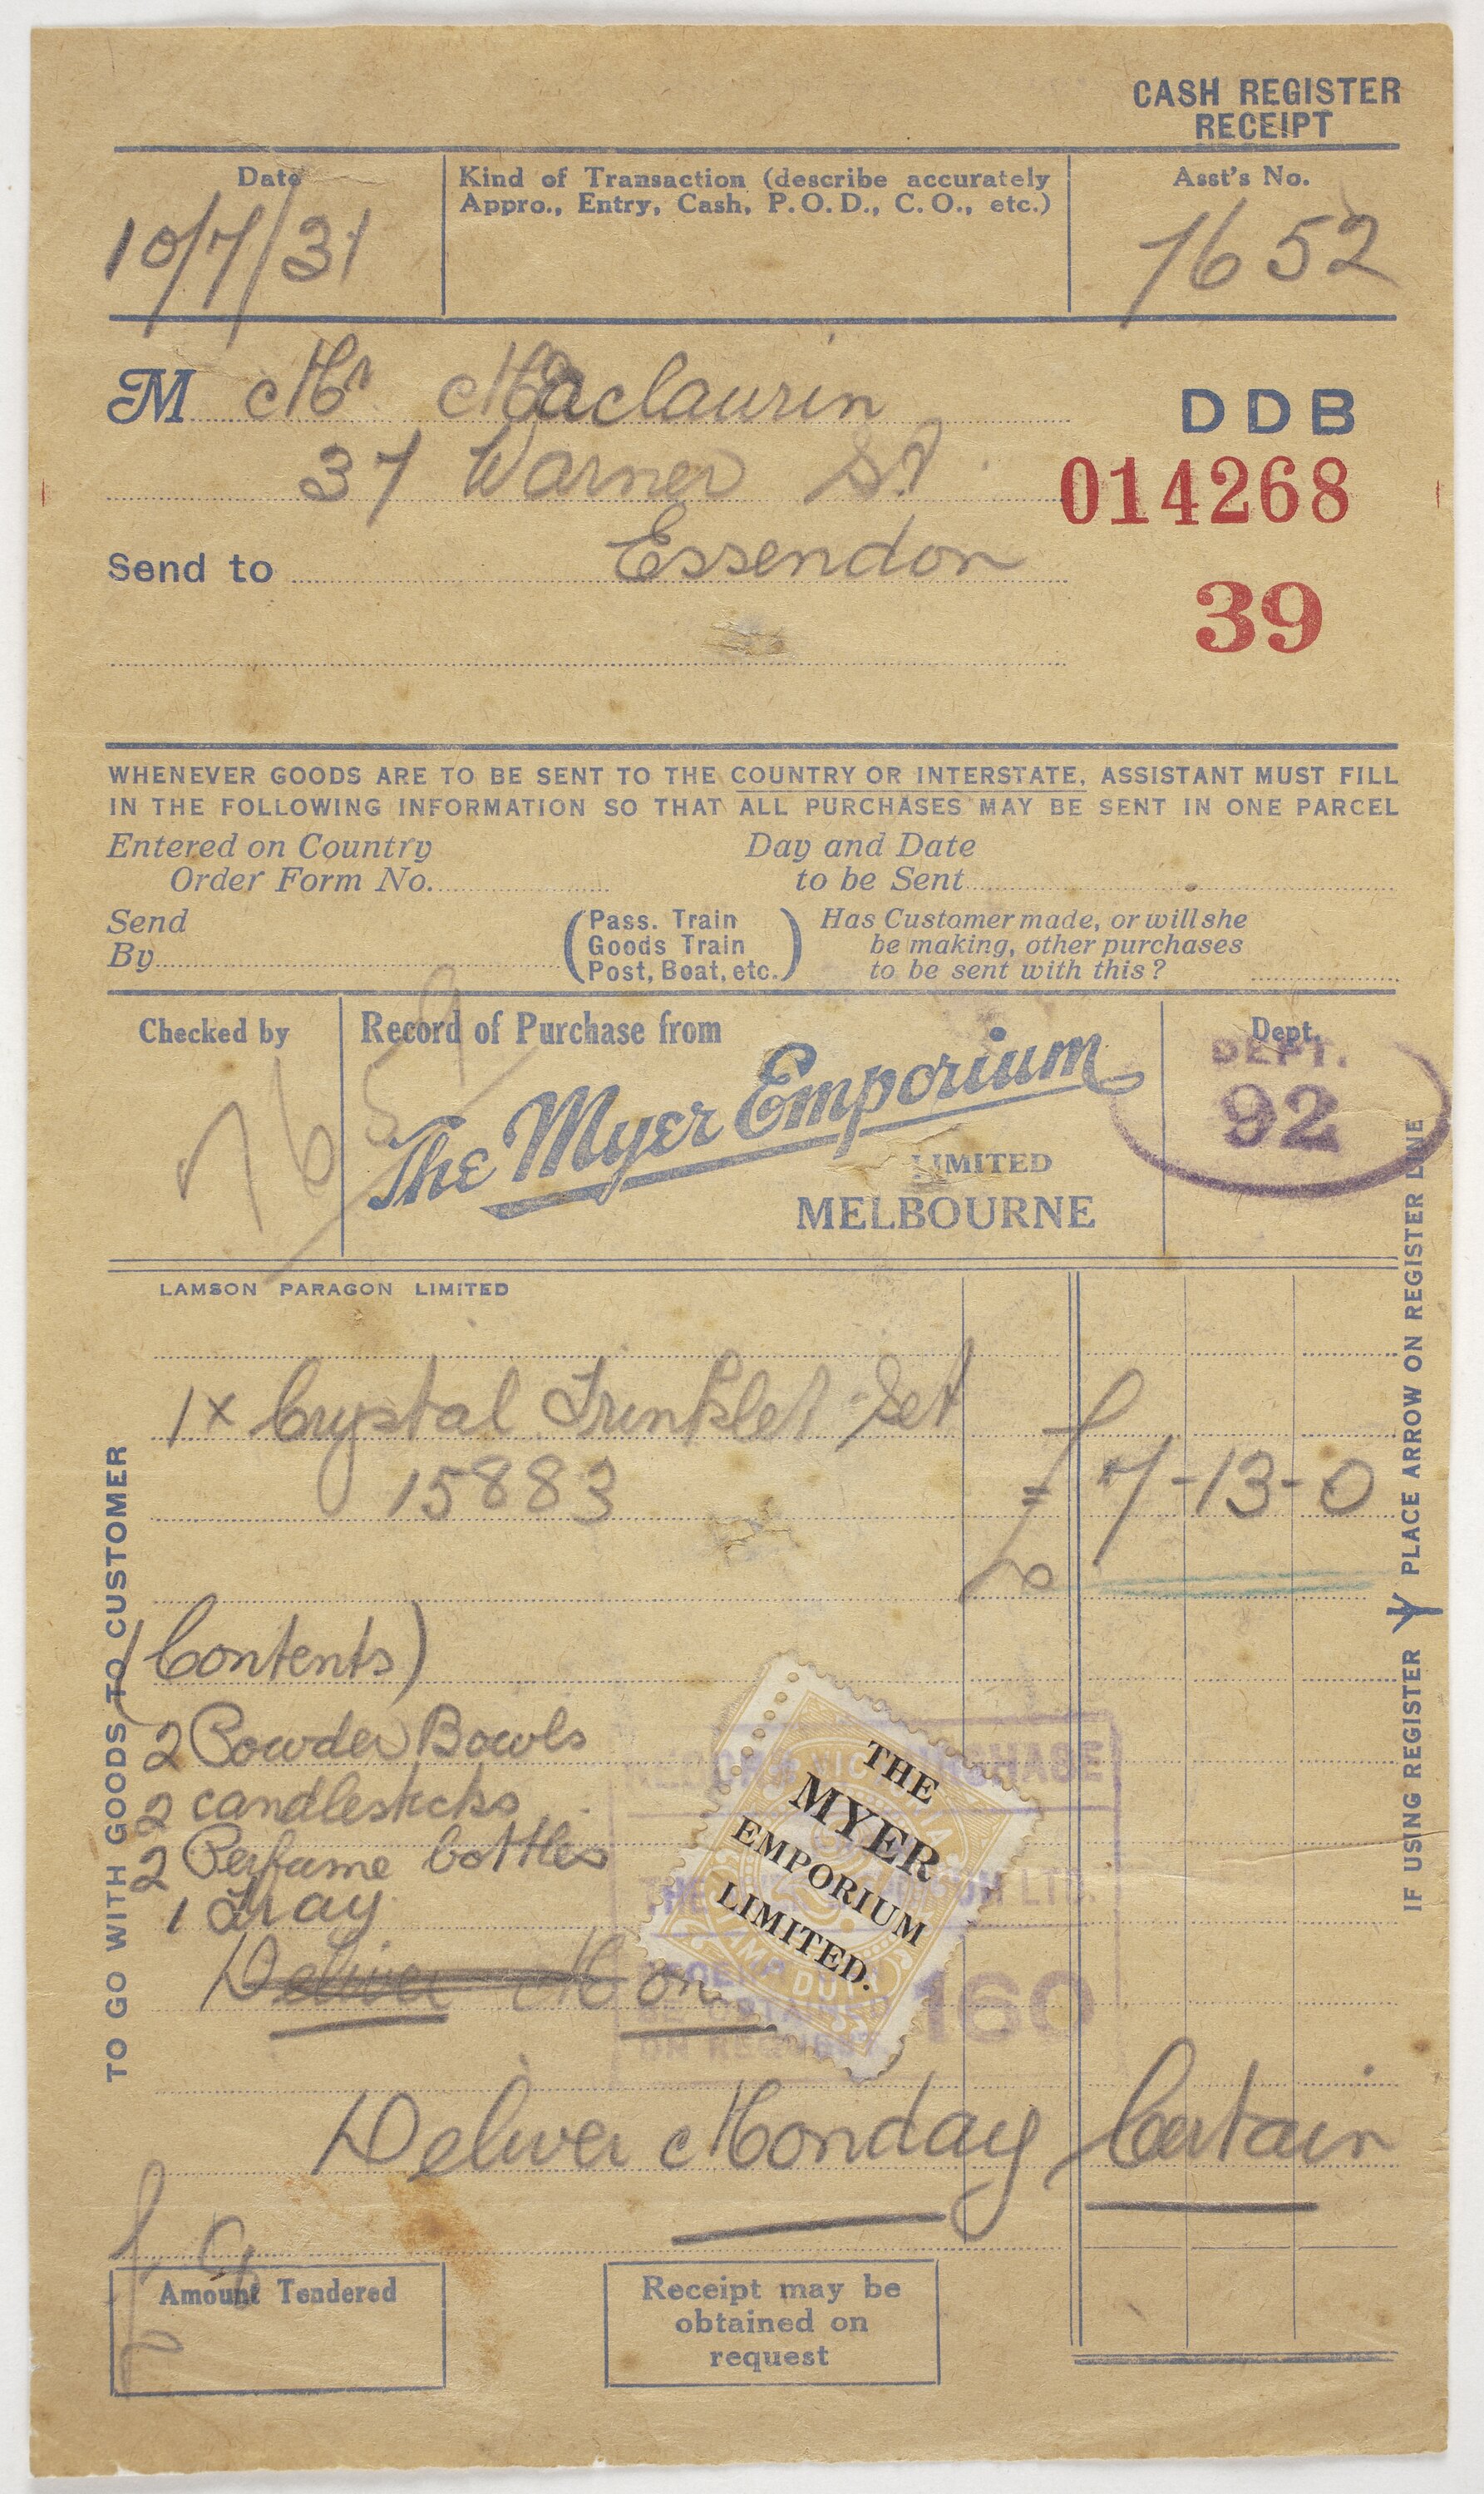 CASH REGISTER
RECEIPT
Date
10/7/31
Kind of Transaction (describe accurately
Appro., Entry, Cash, P.O.D., C.O., etc.)
Asst's No.
7652
M Mr Maclaurin
37 Warner St.
Send to Essendon
DDB
014268
39
WHENEVER GOODS ARE TO BE SENT TO THE COUNTRY OR INTERSTATE, ASSISTANT MUST FILL
IN THE FOLLOWING INFORMATION SO THAT ALL PURCHASES MAY BE SENT IN ONE PARCEL
Entered on Country
Order Form No.
Day and Date
to be Sent
Send
By
(Pass. Train
Goods Train
Post, Boat, etc.)
Has Customer made, or will she
be making, other purchases
to be sent with this?
Checked by
765
Record of Purchase from
The Myer Emporium
LIMITED
MELBOURNE
Dept.
DEPT.
92
LAMSON PARAGON LIMITED
1x Crystal Trinklet Set
15883
= £7-13-0
(Contents)
2 Powder Bowls
2 candlesticks
2 Perfume bottles
1 Tray
Deliver Mon
THE
MYER
EMPORIUM
LIMITED.
RECORD OF PURCHASE
BE OBTAINED
ON REQUEST
160
Deliver Monday Certain
£9
Amount Tendered
Receipt may be
obtained on
request
TO GO WITH GOODS TO CUSTOMER
IF USING REGISTER PLACE ARROW ON REGISTER LINE